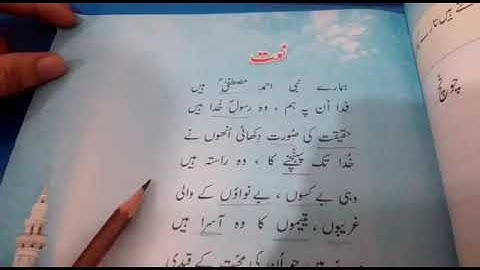 نعت
ہمارے نبی احمد مصطفیٰؐ ہیں
فدا اُن پہ ہم ، وہ رسولِ خُدا ہیں
حقیقت کی صورت دکھائی اُنھوں نے
خُدا تک پہنچنے کا ، وہ راستہ ہیں
وہی بے کسوں ، بے نواؤں کے والی
غریبوں، یتیموں کا وہ آسرا ہیں
جو اُن کی محبت کے قیدی
چونچ